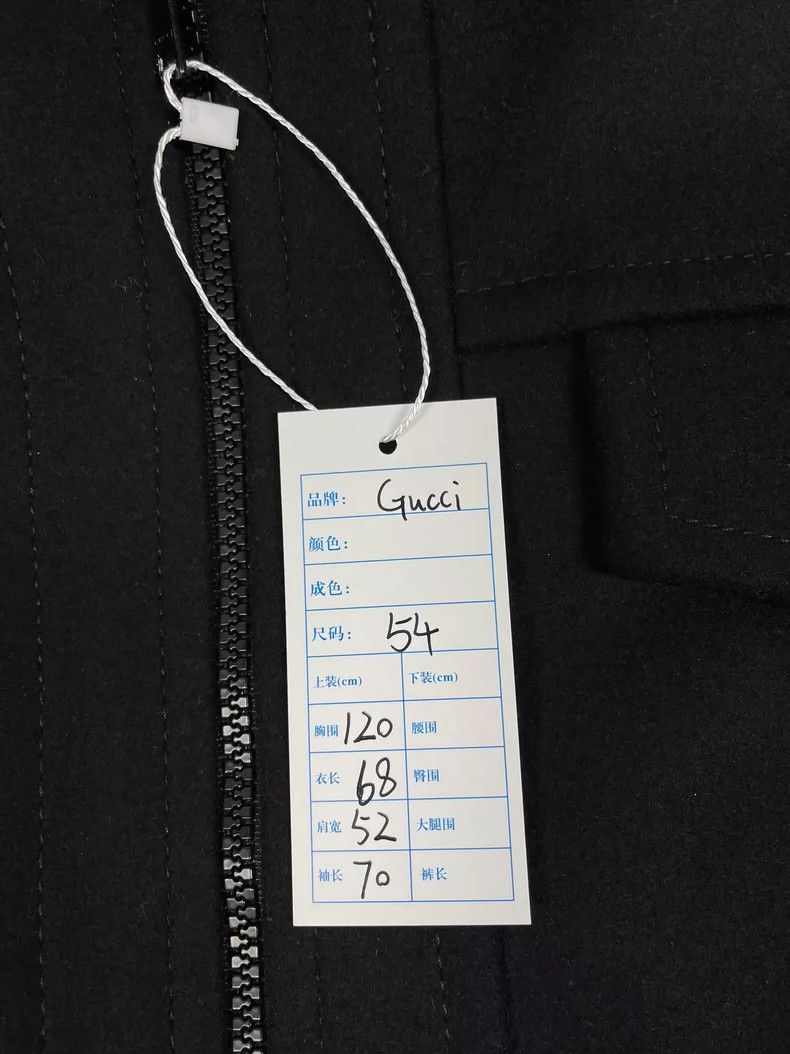 品牌： Gucci
颜色：
成色：
尺码： 54
上装(cm) 下装(cm)
胸围 120 腰围
衣长 68 臀围
肩宽 52 大腿围
袖长 70 裤长